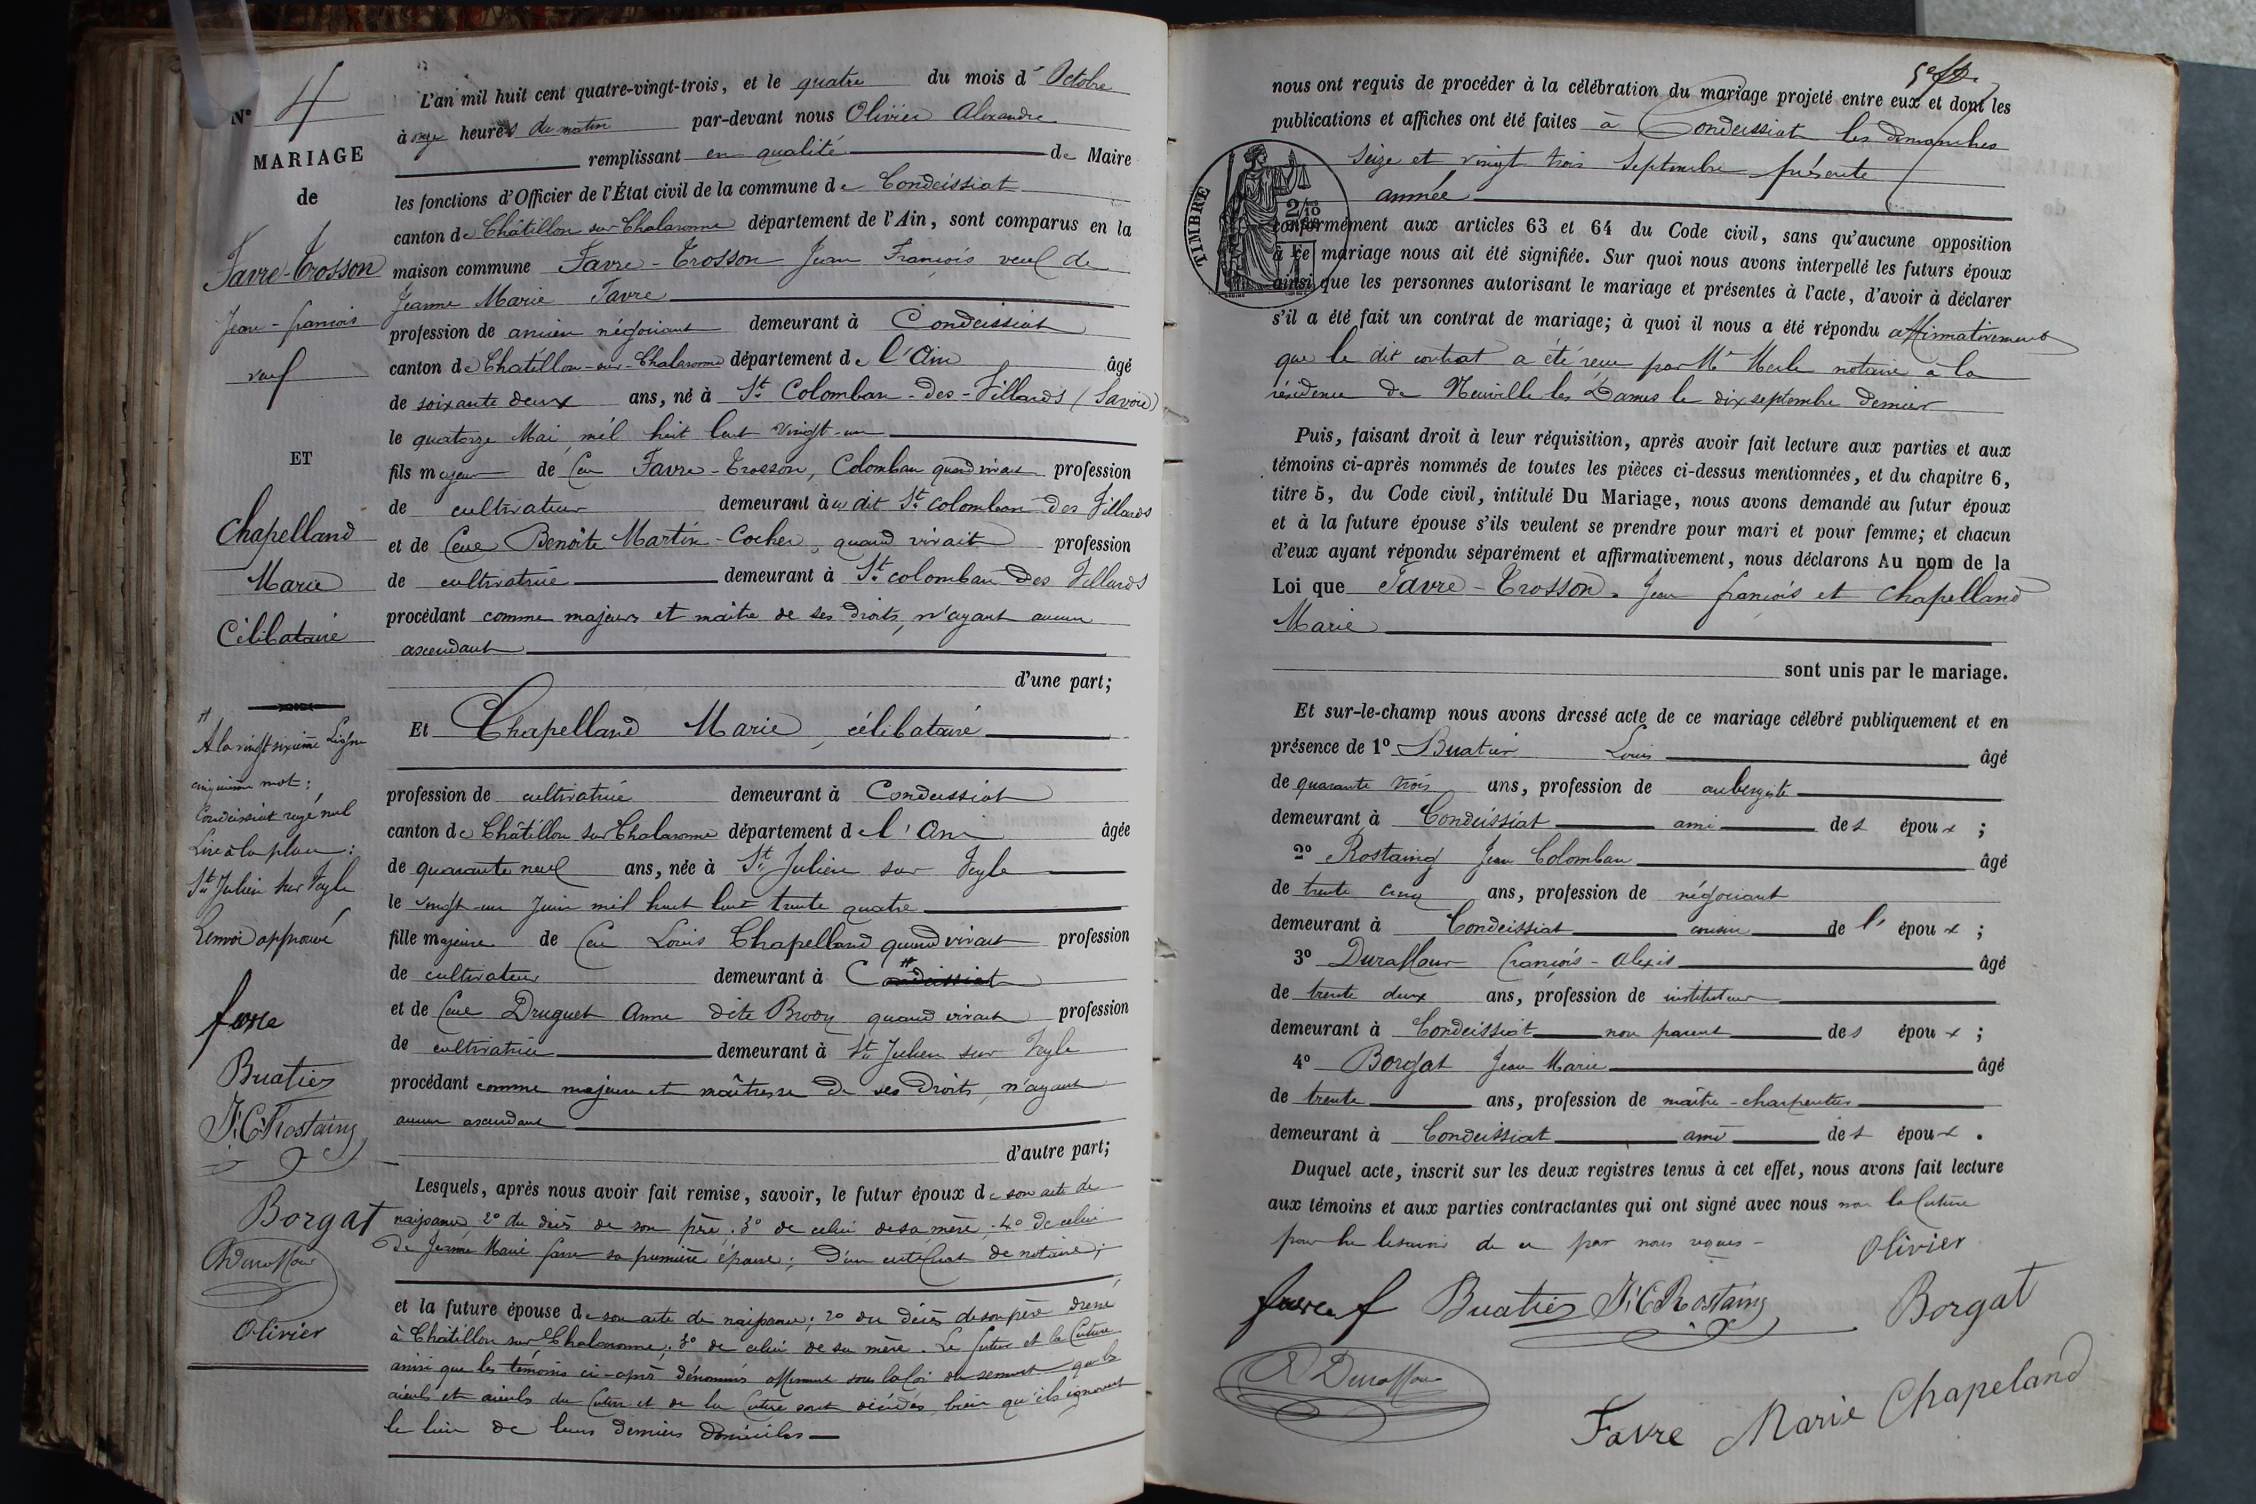 N° 4
MARIAGE
de
Favre-Trosson
Jean-françois
veuf
ET
Chapelland
Marie
Célibataire
A la vingt sixième Ligne
cinquième mot :
Condeissiat rayé nul
Lire à la place :
St Julien sur Veyle
Renvoi approuvé
favre
Buatier
J.C. Rostaing
Borgat
Duraffour
Olivier
L'an mil huit cent quatre-vingt-trois, et le quatre du mois d' Octobre
à onze heures du matin par-devant nous Olivier Alexandre
remplissant en qualité de Maire
les fonctions d'Officier de l'État civil de la commune de Condeissiat
canton de Châtillon sur Chalaronne département de l'Ain, sont comparus en la
maison commune Favre-Trosson Jean François veuf de
Jeanne Marie Favre
profession de ancien négociant demeurant à Condeissiat
canton de Châtillon-sur-Chalaronne département de l'Ain âgé
de soixante deux ans, né à St Colomban-des-Villards (Savoie)
le quatorze Mai mil huit cent vingt-un
fils majeur de feu Favre-Trosson, Colomban quand vivait profession
de cultivateur demeurant au dit St colomban des Villards
et de feue Benoîte Martin-Cocher, quand vivait profession
de cultivatrice demeurant à St colomban des Villards
procédant comme majeur et maître de ses droits, n'ayant aucun
ascendant
d'une part;
Et Chapelland Marie, célibataire
profession de cultivatrice demeurant à Condeissiat
canton de Châtillon sur Chalaronne département de l'Ain âgée
de quarante neuf ans, née à St Julien sur Veyle
le vingt-un Juin mil huit cent trente quatre
fille majeure de feu Louis Chapelland quand vivait profession
de cultivateur demeurant à Condeissiat
et de feue Druguet Anne dite Brody quand vivait profession
de cultivatrice demeurant à St Julien sur Veyle
procédant comme majeure et maîtresse de ses droits, n'ayant
aucun ascendant
d'autre part;
Lesquels, après nous avoir fait remise, savoir, le futur époux de son acte de
naissance 2° du décès de son père. 3° de celui de sa mère. 4° de celui
de Jeanne Marie favre sa première épouse; d'un certificat de notaire;
et la future épouse de son acte de naissance; 2° du décès de son père dressé
à Châtillon sur Chalaronne; 3° de celui de sa mère. Le futur et la future
ainsi que les témoins ci-après dénommés affirment sous la foi du serment que les
aïeuls et aïeules du futur et de la future sont décédés, bien qu'ils ignorent
le lieu de leurs derniers domiciles
nous ont requis de procéder à la célébration du mariage projeté entre eux et dont les
publications et affiches ont été faites à Condeissiat les dimanches
seize et vingt trois Septembre présente
année
TIMBRE
2/10
conformément aux articles 63 et 64 du Code civil, sans qu'aucune opposition
à ce mariage nous ait été signifiée. Sur quoi nous avons interpellé les futurs époux
ainsi que les personnes autorisant le mariage et présentes à l'acte, d'avoir à déclarer
s'il a été fait un contrat de mariage; à quoi il nous a été répondu affirmativement
que le dit contrat a été reçu par Me Merle notaire à la
résidence de Neuville les Dames le dix septembre dernier
Puis, faisant droit à leur réquisition, après avoir fait lecture aux parties et aux
témoins ci-après nommés de toutes les pièces ci-dessus mentionnées, et du chapitre 6,
titre 5, du Code civil, intitulé Du Mariage, nous avons demandé au futur époux
et à la future épouse s'ils veulent se prendre pour mari et pour femme; et chacun
d'eux ayant répondu séparément et affirmativement, nous déclarons Au nom de la
Loi que Favre-Trosson. Jean françois et Chapelland
Marie
sont unis par le mariage.
Et sur-le-champ nous avons dressé acte de ce mariage célébré publiquement et en
présence de 1° Buatier Louis âgé
de quarante trois ans, profession de aubergiste
demeurant à Condeissiat ami des époux ;
2° Rostaing Jean Colomban âgé
de trente cinq ans, profession de négociant
demeurant à Condeissiat cousin de l' époux ;
3° Duraffour François-Alexis âgé
de trente deux ans, profession de instituteur
demeurant à Condeissiat non parent des époux ;
4° Borgat Jean Marie âgé
de trente ans, profession de maître-charpentier
demeurant à Condeissiat ami des époux .
Duquel acte, inscrit sur les deux registres tenus à cet effet, nous avons fait lecture
aux témoins et aux parties contractantes qui ont signé avec nous non la future
pour ne le savoir de ce par nous requis
Olivier
favre f Buatier J.C. Rostaing Borgat
Duraffour
Favre Marie Chapeland